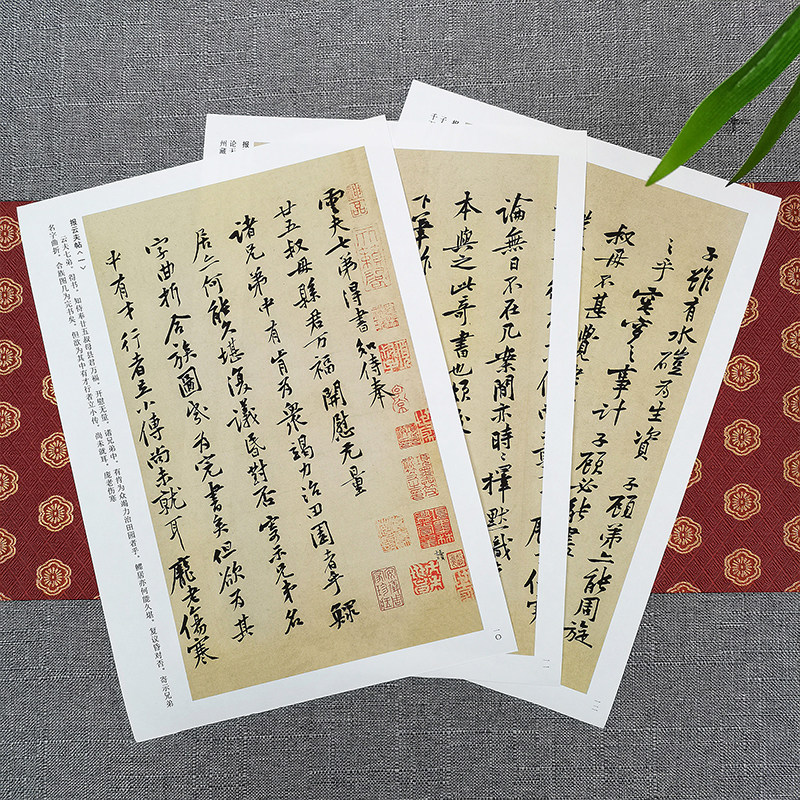 报云夫帖〈一〉
云夫七弟，得书，知侍奉廿五叔母县君万福，开慰无量。诸兄弟中，有肯为众竭力治田园者乎，鳏居亦何能久堪，复议昏对否，寄示兄弟
名字曲折，合族图几为完书矣。但欲为其中有才行者立小传，尚未就耳。庞老伤寒
雲夫七弟得書知侍奉
廿五叔母縣君万福開慰无量
諸兄弟中有肯为衆竭力治田園者乎鰥
居亦何能久堪復議昏對否寄示兄弟名
字曲折合族圖几为完書矣但欲为其
中有才行者立小傳尚未就耳龐老傷寒
一〇
論無日不在几案間亦時時擇默識
本與之此奇書也頃
下筆
一一
子雖有水磑为生資子顧弟亦能周旋
之乎窀穸之事計子顧必能盡
叔母不甚費
一二